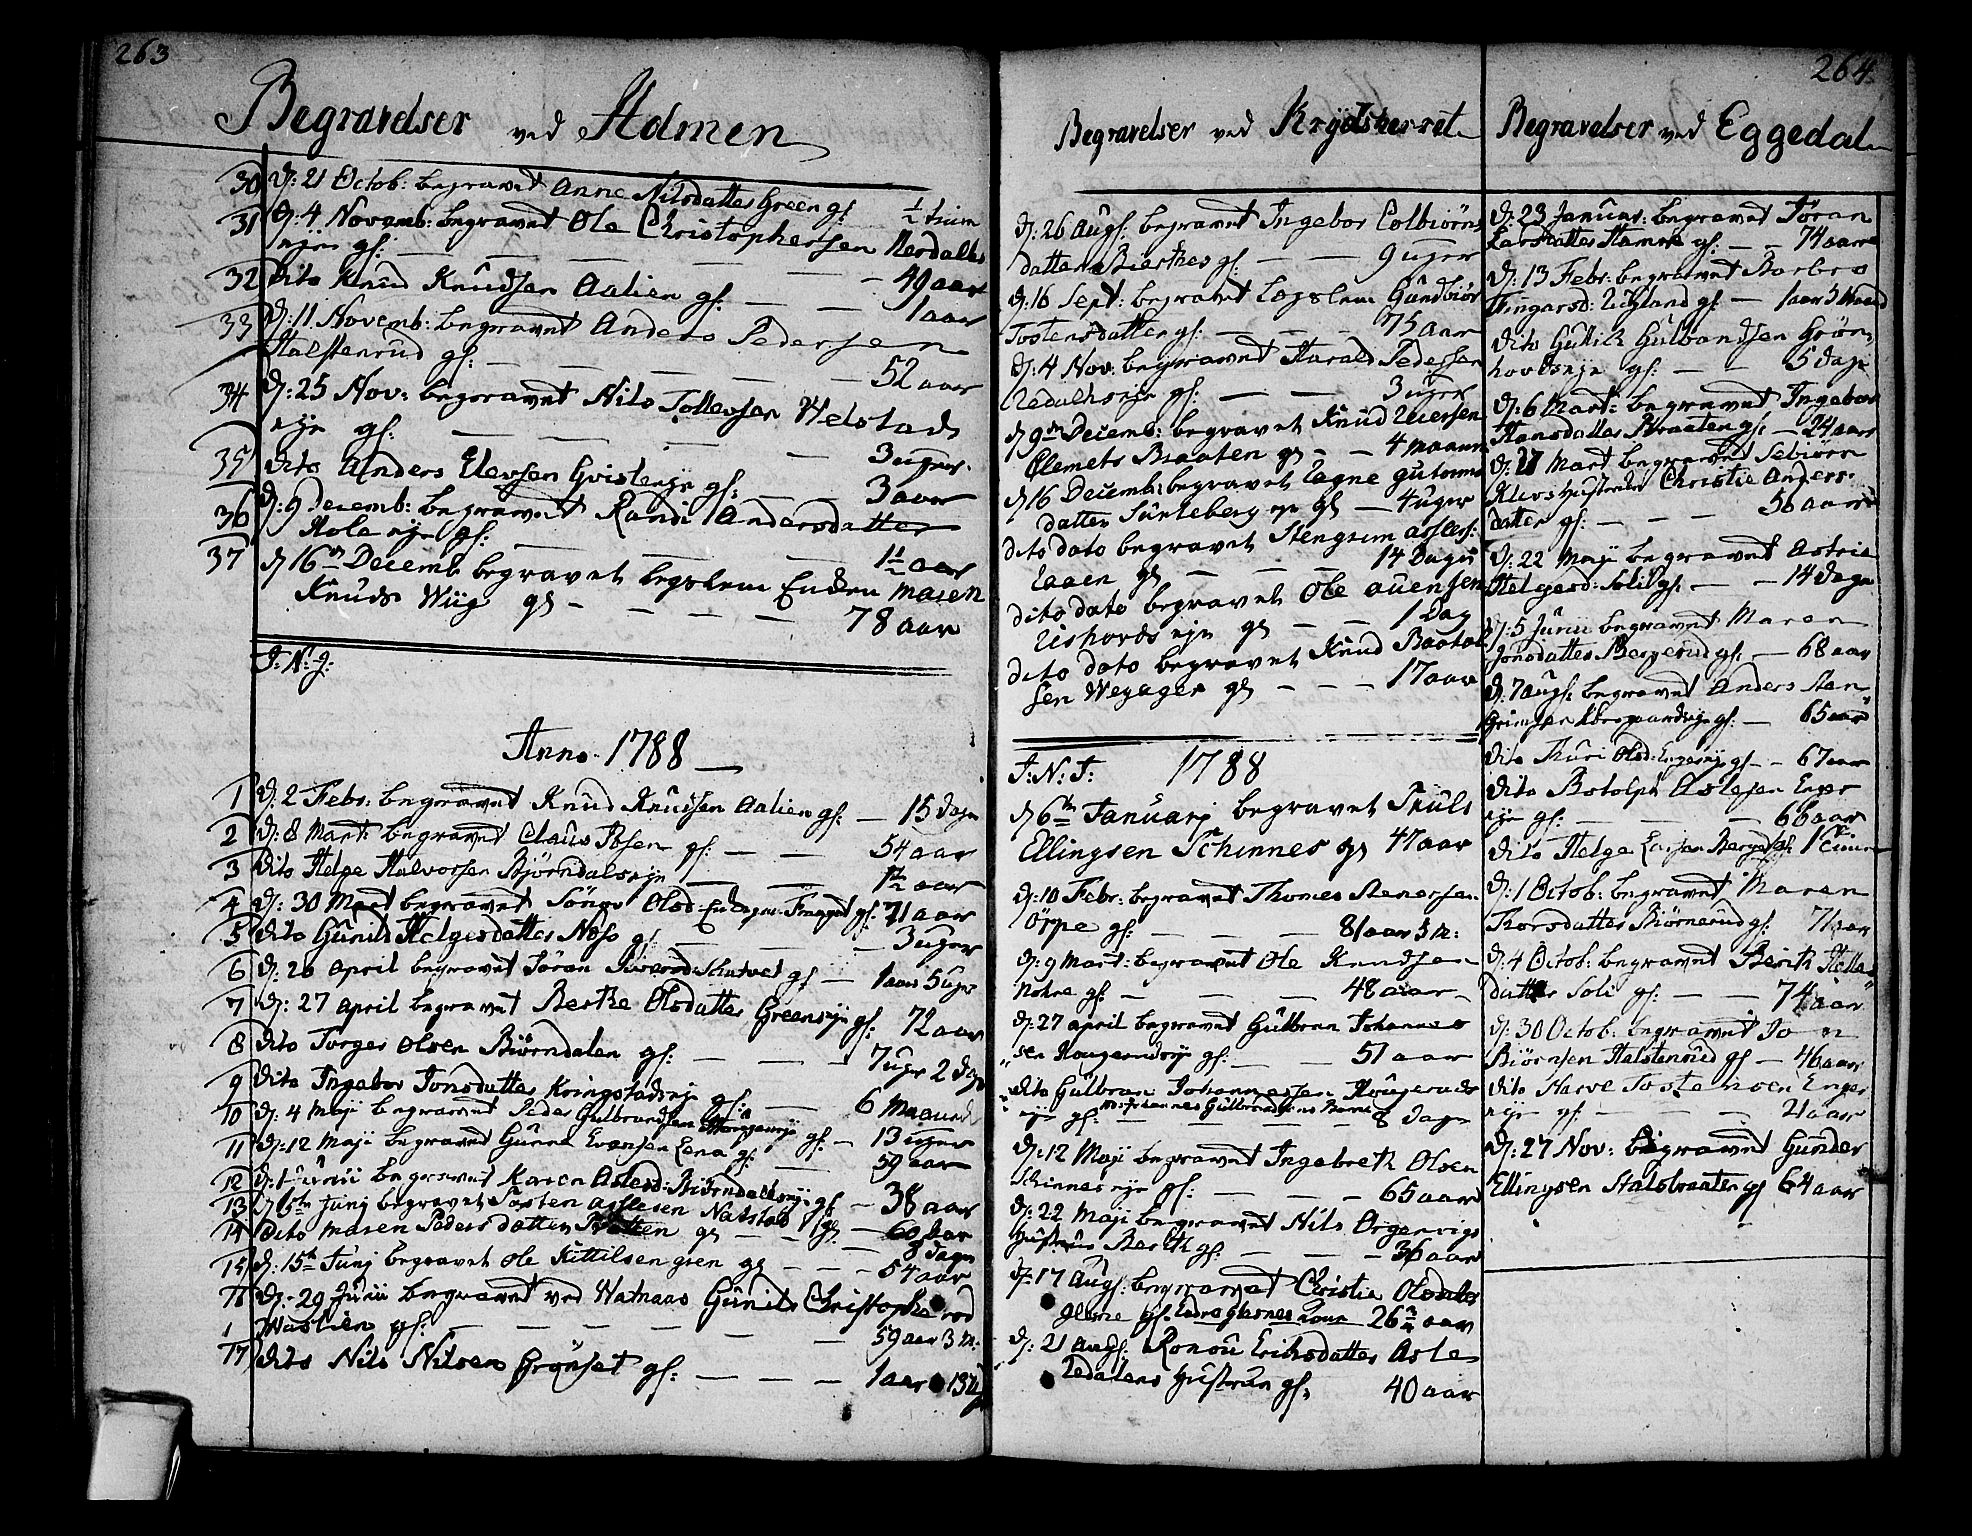 263
Begravelser ved Holmen
30 d: 21 Octob: begravet Anne Nilsdatter Green gl: ½ tiim
31 d: 4 Novemb: begravet Ole Christophersen Nerdals
eje gl: — — — — — 49 aar
32 dito Knud Knudsen Aalien gl: — — 1 aar
33 d: 11 Novemb: begravet Anders Pedersen
Halstenrud gl: — — — — — 52 aar
34 d: 25 Nov: begravet Nils Tollevsen Velstad
eje gl: — — — — 3 uger
35 dito Anders Elevsen Gvisleeje gl: — — 3 aar
36 d: 9 Decemb: begravet Randi Andersdatter
Hole eje gl: — — — — 1½ aar
37 d 16de Decemb begravet begslem Enden Maren
Knuds Wiig gl — — — — 78 aar
J: N: J:
Anno 1788
1 d: 2 Febr: begravet Knud Knudsen Aalien gl: — 15 Dage
2 d: 8 Mart: begravet Claus Ibsen gl: — — 54 aar
3 dito Helge Halvorsen Bjørndalseje — — 1½ aar
4 d: 30 Mart begravet Olsd: gl: 71 aar
5 dito Gunild Helgesdatter Næss gl — — — 3 uger
6 d: 20 April begravet Jøran gl — 1 aar 5 uger
7 d: 27 April begravet Berthe Olsdatter Greeneje gl: 72 aar
8 dito Torger Olsen Biørndalen gl: — — — 7 uger 2 dage
9 dito Ingebor Jonsdatter Kringstadeje gl: — 6 Maaned
10 d: 4 Maji begravet Peder Gulbrandsen gl: — 13 uger
11 d: 12 Maji begravet Gunne Evensen Lena gl: — 59 aar
12 d: 1 Junii begravet Karen Aslesd: Biørndalseje gl — 38 aar
13 d 6te Junj begravet Tosten Asslesen Natstad gl — 60 aar
14 dito Maren Pedersdatter Bratten gl — — — 8 dage
15 d: 15de Junj begravet Ole Kittilsen gren gl — — — 54 aar
16 d: 29 Junii begravet ved Natnaas Gunild Christophersd
1 gl: — — — — — 59 aar 3 m:
17 dito Nils Nilsen Grønset gl: — — — 1 aar 13 ug

Begravelser ved Krydsherret
d: 26 Augs: begravet Ingebor Colbiørns
datter Bierkes gl: — — 9 uger
d: 16 Sept: begravet Legslem Gundbiør
Tostensdatter gl: — — — 75 aar
d: 4 Nov: begravet Harald Pedersen
Redalens eje gl: — — 3 uger
d 9de Decemb: begravet Knud Iversen
Clemets Braaten gl — — 4 maaner
d 16 Decemb: begravet Aagne Guttorms
datter Surteberg eje gl — 4 uger
dito dato begravet Stengrim Asles:
Laaen gl — — — 14 Dage
dito dato begravet Ole Auensen
Rishovds eje gl — — 1 Dag
dito dato begravet Knud Baatol
sen Weyager gl — — — 17 aar
J: N: J: 1788
d 6te Januarj begravet Truls
Ellingsen Schinnes gl 47 aar
d: 10 Febr: begravet Thomes Stenersen
Ørpe gl: — — — 81 aar 3 m:
d: 9 Mart: begravet Ole Knudsen
Nohre gl: — — — 48 aar
d: 27 April begravet Gulbran Johannes
sen Hougerudeje gl: — — 51 aar
dito Gulbran Johannessen Hougeruds
eje gl: Johannes Gulbrandsens Barn 8 dage
d: 12 Maji begravet Ingebreth Olsen
Schinnes eje gl: — — — 65 aar
d: 22 Maji begravet Nils Orgenvigs
Hustrue Berith gl: — — — 36 aar
d: 17 Augs: begravet Christie Olsdatter
Glesne gl: Peder Glesnes Kone 26 aar
d: 21 Augs: Ronou Eriksdatter Asle
Ledalens Hustrue gl: 40 aar

264
Begravelser ved Eggedal
d: 23 Januar: begravet Jøran
Larsdatter Hamre gl: — — 74 aar
d: 13 Febr: begravet Barbro
Fingarsd: Ligland gl: — 1 aar 3 Maaned
dito Gullik Gulbrandsen Grøn
hovdseje gl: — — 5 dage
d: 6 Mart: begravet Ingebor
Hansdatter Braaten gl: — 24 aar
d: 27 Mart begravet Sebiørn
Hustrue Christie Anders
datter gl: — — — 56 aar
d: 22 Maji begravet Astrie
Helgesd: Solie gl: — — 14 dage
d: 5 Junii begravet Maren
Jonsdatter Bergerud gl: — 68 aar
d: 7 Augs: begravet Anders Sten
grimsen gl: — 65 aar
dito Thuri Olsd: Engeseje gl — — 67 aar
dito Botolph Aslesen Enger
eje gl: — — — — 66 aar
dito Helge Larsen gl: 1 time
d: 1 Octob: begravet Maren
Thorsdatter Biørnerud gl: 71 aar
d: 4 Octob: begravet Berith Helles
datter Soli gl: — — 74 aar
d: 30 Octob: begravet Jon
Biørnsen Halstensrud gl — 46 aar
dito Narve Tostensen Enger
eje gl: — — — — 21 aar
d: 27 Nov: begravet Gunder
Ellingsen Halsbraaten gl 64 aar